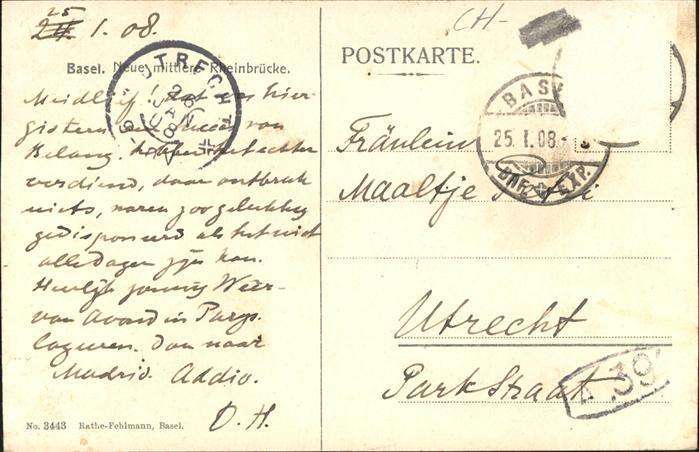 25
24. 1. 08.
CH-
Basel. Neue mittlere Rheinbrücke.
POSTKARTE.
UTRECHT
26
JAN
08
BAS
25. I. 08.-
BRF. EXP.
Meidlief! Het was hier
gisteren een succes van
Belang.
verdiend, daar ontbrak
niets, waren zoo gelukkig
gedisponeerd als het niet
alle dagen zijn kan.
Heerlijk jonny Weer-
van Avond in Parys
logeeren. Dan naar
Madrid. Addio.
D. H.
Fräulein
Maaltje
Utrecht
ParkStraat
39
No. 3443 Rathe-Fehlmann, Basel.